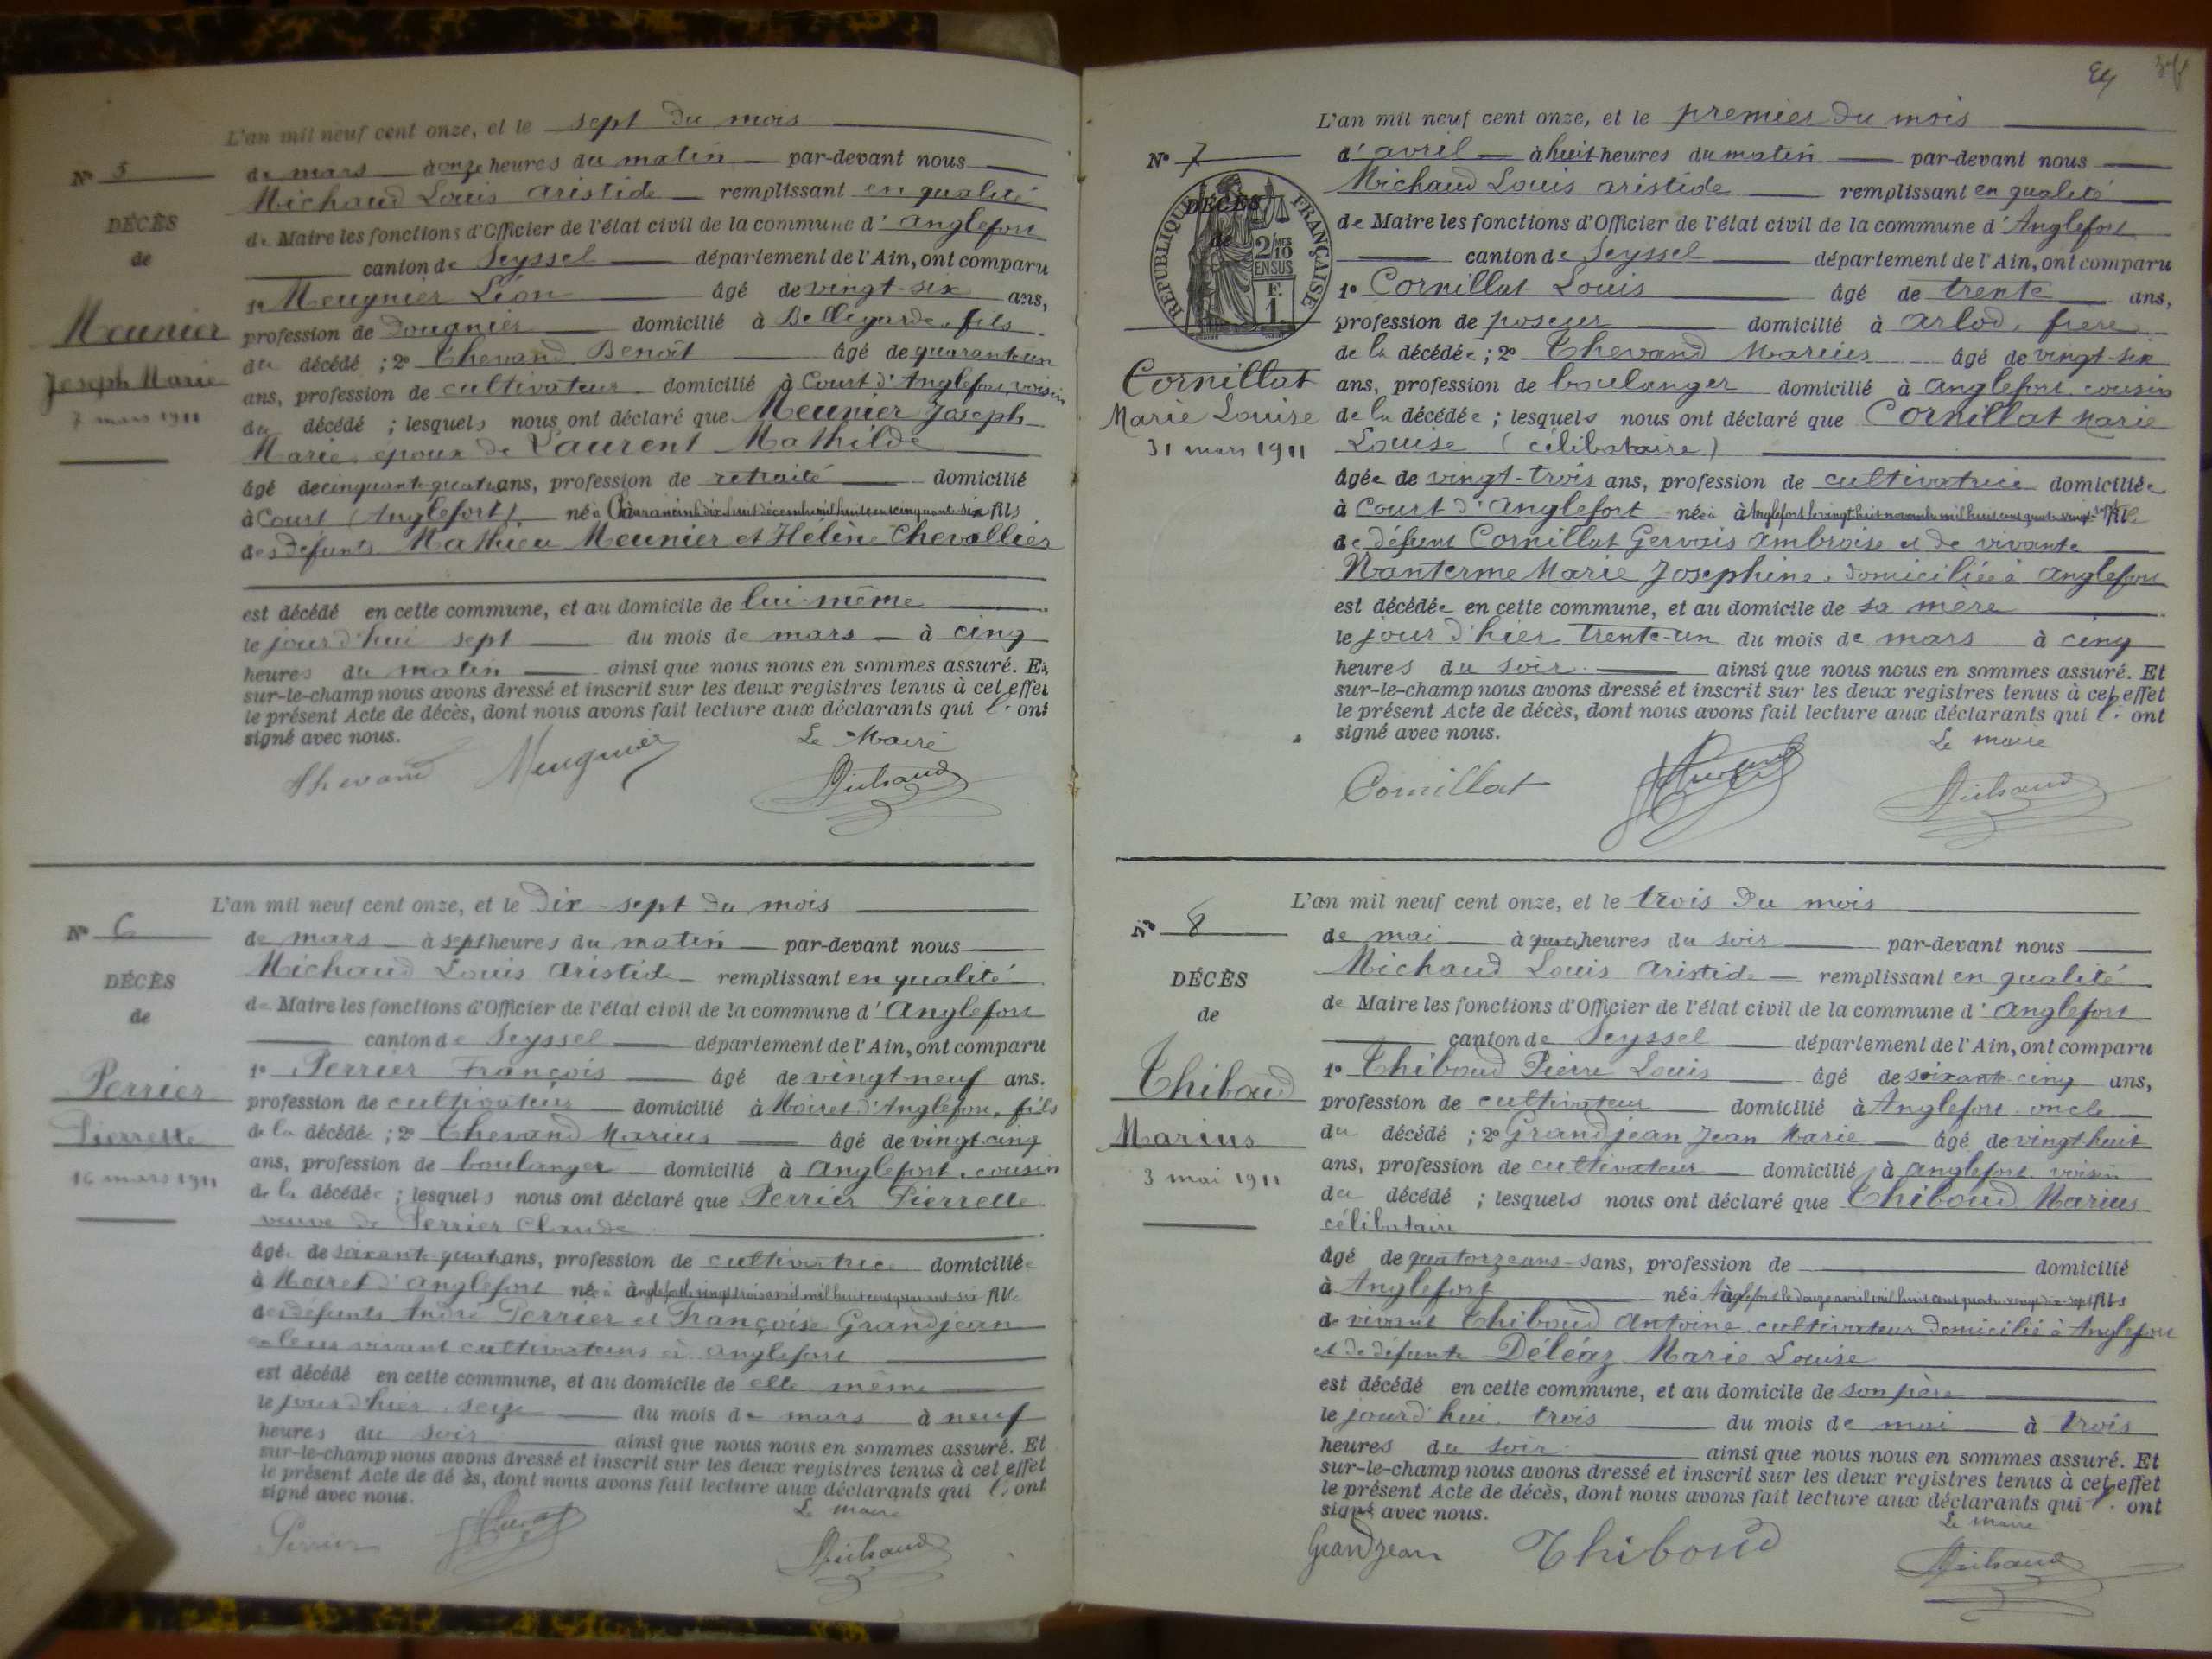 L'an mil neuf cent onze, et le sept du mois
N° 5
de mars à onze heures du matin par-devant nous
Michaud Louis Aristide remplissant en qualité
DÉCÈS
de Maire les fonctions d'Officier de l'état civil de la commune d'Anglefort
de
canton de Seyssel département de l'Ain, ont comparu
1° Meugnier Léon âgé de vingt-six ans,
Meunier
profession de douanier domicilié à Bellegarde, fils
du décédé ; 2° Thevand Benoît âgé de quarante un
Joseph Marie
ans, profession de cultivateur domicilié à Court d'Anglefort, voisin
7 mars 1911
du décédé ; lesquels nous ont déclaré que Meunier Joseph
Marie, époux de Laurent Mathilde
âgé de cinquante quatre ans, profession de retraité domicilié
à Court (Anglefort) né à dix huit décembre mil huit cent cinquante six fils
des défunts Mathieu Meunier et Hélène Chevallier
est décédé en cette commune, et au domicile de lui-même
le jourd'hui sept du mois de mars à cinq
heures du matin ainsi que nous nous en sommes assuré. Et
sur-le-champ nous avons dressé et inscrit sur les deux registres tenus à cet effet
le présent Acte de décès, dont nous avons fait lecture aux déclarants qui l'ont
signé avec nous.
Le Maire
Thevand Meugnier Michaud
L'an mil neuf cent onze, et le dix-sept du mois
N° 6
de mars à sept heures du matin par-devant nous
Michaud Louis Aristide remplissant en qualité
DÉCÈS
de Maire les fonctions d'Officier de l'état civil de la commune d'Anglefort
de
canton de Seyssel département de l'Ain, ont comparu
1° Perrier François âgé de vingt-neuf ans.
Perrier
profession de cultivateur domicilié à Moiret d'Anglefort, fils
Pierrette
de la décédée ; 2° Thevand Marius âgé de vingt-cinq
ans, profession de boulanger domicilié à Anglefort, cousin
16 mars 1911
de la décédée ; lesquels nous ont déclaré que Perrier Pierrette
veuve de Perrier Claude
âgée de soixante-quatre ans, profession de cultivatrice domiciliée
à Moiret d'Anglefort née à Anglefort le vingt trois avril mil huit cent quarante six fille
des défunts André Perrier et Françoise Grandjean
en leur vivant cultivateurs à Anglefort
est décédé en cette commune, et au domicile de elle même
le jour d'hier seize du mois de mars à neuf
heures du soir ainsi que nous nous en sommes assuré. Et
sur-le-champ nous avons dressé et inscrit sur les deux registres tenus à cet effet
le présent Acte de décès, dont nous avons fait lecture aux déclarants qui l'ont
signé avec nous.
Le maire
Perrier Michaud
24
L'an mil neuf cent onze, et le premier du mois
N° 7
d'avril à huit heures du matin par-devant nous
Michaud Louis Aristide remplissant en qualité
DÉCÈS
de
RÉPUBLIQUE FRANÇAISE
2/10
EN SUS
F.
1.
de Maire les fonctions d'Officier de l'état civil de la commune d'Anglefort
canton de Seyssel département de l'Ain, ont comparu
1° Cornillat Louis âgé de trente ans,
profession de poseur domicilié à Arlod, frère
de la décédée ; 2° Thevand Marius âgé de vingt-six
Cornillat
ans, profession de boulanger domicilié à Anglefort, cousin
Marie Louise
de la décédée ; lesquels nous ont déclaré que Cornillat Marie
31 mars 1911
Louise (célibataire)
âgée de vingt-trois ans, profession de cultivatrice domiciliée
à Court d'Anglefort née à Anglefort le vingt huit novembre mil huit cent quatre vingt sept fille
de défunt Cornillat Gervais Ambroise et de vivante
Nanterme Marie Josephine, domiciliée à Anglefort
est décédée en cette commune, et au domicile de sa mère
le jour d'hier trente-un du mois de mars à cinq
heures du soir ainsi que nous nous en sommes assuré. Et
sur-le-champ nous avons dressé et inscrit sur les deux registres tenus à cet effet
le présent Acte de décès, dont nous avons fait lecture aux déclarants qui l'ont
signé avec nous.
Le maire
Cornillat Michaud
L'an mil neuf cent onze, et le trois du mois
N° 8
de mai à quatre heures du soir par-devant nous
Michaud Louis Aristide remplissant en qualité
DÉCÈS
de Maire les fonctions d'Officier de l'état civil de la commune d'Anglefort
de
canton de Seyssel département de l'Ain, ont comparu
1° Thiboud Pierre Louis âgé de soixante cinq ans,
Thiboud
profession de cultivateur domicilié à Anglefort oncle
Marius
du décédé ; 2° Grandjean Jean Marie âgé de vingt huit
ans, profession de cultivateur domicilié à Anglefort voisin
3 mai 1911
du décédé ; lesquels nous ont déclaré que Thiboud Marius
célibataire
âgé de quatorze ans ans, profession de domicilié
à Anglefort né à Anglefort le douze avril mil huit cent quatre vingt dix-sept fils
de vivant Thiboud Antoine cultivateur domicilié à Anglefort
et de défunte Déléaz Marie Louise
est décédé en cette commune, et au domicile de son père
le jourd'hui trois du mois de mai à trois
heures du soir ainsi que nous nous en sommes assuré. Et
sur-le-champ nous avons dressé et inscrit sur les deux registres tenus à cet effet
le présent Acte de décès, dont nous avons fait lecture aux déclarants qui l'ont
signé avec nous.
Le maire
Grandjean Thiboud Michaud